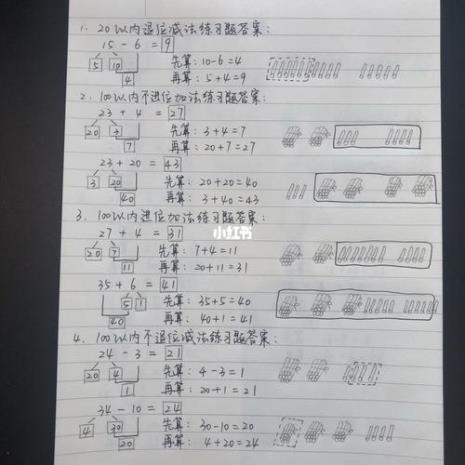 1. 20以内退位减法练习题答案：
15 - 6 = 9
5 10 先算：10-6=4
4 再算：5+4=9
2. 100以内不进位加法练习题答案：
23 + 4 = 27
20 3 先算：3+4=7
7 再算：20+7=27
23 + 20 = 43
3 20 先算：20+20=40
40 再算：3+40=43
3. 100以内进位加法练习题答案：
27 + 4 = 31
小红书
20 7 先算：7+4=11
11 再算：20+11=31
35 + 6 = 41
5 1 先算：35+5=40
40 再算：40+1=41
4. 100以内不退位减法练习题答案：
24 - 3 = 21
20 4 先算：4-3=1
1 再算：20+1=21
34 - 10 = 24
4 30 先算：30-10=20
20 再算：4+20=24